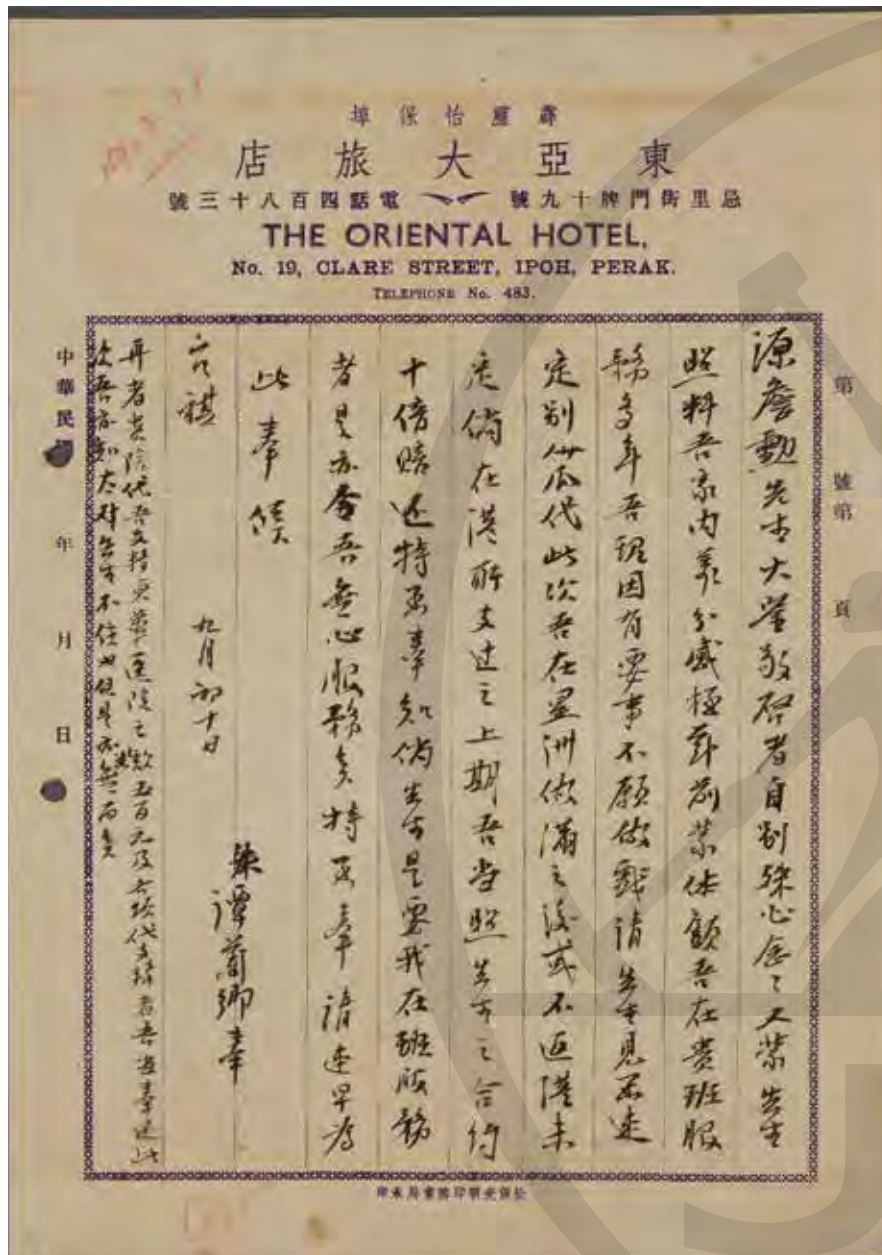 霹靂怡保埠
東亞大旅店
忌里街門牌十九號 電話四百八十三號
THE ORIENTAL HOTEL,
No. 19, CLARE STREET, IPOH, PERAK.
TELEPHONE No. 483.
第 號第 頁
源詹勳先生大鑒敬啓者自別殊心念々又蒙先生
照料吾家内義分感極卦前蒙体顧吾在貴班服
務多年吾現因有要事不願做戲請先生見函速
定別人瓜代此次吾在星洲做滿之後或不返港未
定倘在港所支过之上期吾当照先生之合約
十倍賠还特函奉知倘先生是要我在班服務
者是亦令吾無心服務矣特函奉請速早为
此奉候
台祺
九月初十日
妹譚蘭卿奉
再者貴院代吾支持東華醫院之欵五百元及各項代支持者吾當奉还此
次吾亦知太对先生不住也但是亦無而矣
中華民國 年 月 日